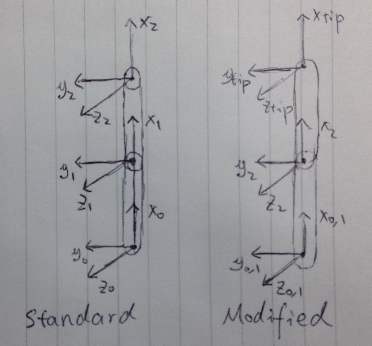 x2
y2
z2
x1
y1
z1
x0
y0
z0
Standard
xtip
ytip
ztip
x2
y2
z2
x0,1
y0,1
z0,1
Modified